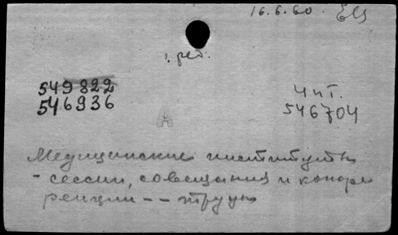 16.6.60.
1 рет.
549822
546936
Чит.
546704
Медицинские институты
- сессии, совещания и конфе
ренции -- труды